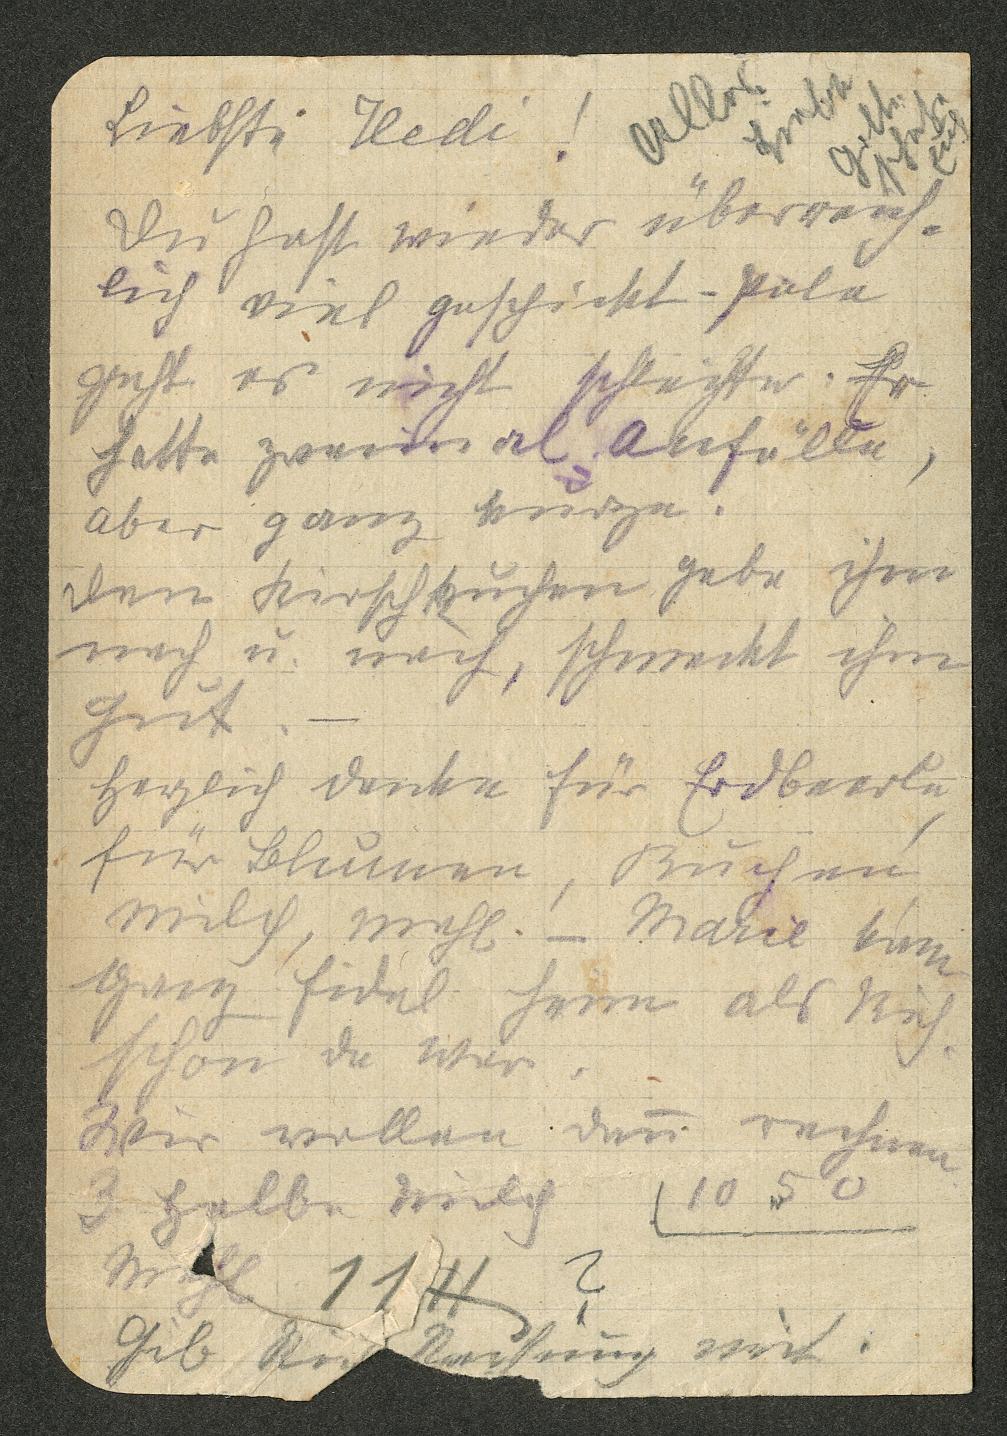 Liebste Hedi!
Du hast wieder überreich-
lich viel geschickt - Pala
geht es nicht schlechter. Er
hatte zweimal Anfälle,
aber ganz kurze.
Den Kirschkuchen gebe ihm
nach u. nach, schmeckt ihm
gut. —
Herzlich danke für Erdbeerle,
für Blumen, Kuchen,
Milch, Mehl. — Marie kam
ganz fidel heim als Rich.
schon da war.
Wir wollen dañ rechnen
3 halbe Milch 10 50
Mehl 11 ?
Gib Rechnung mit.